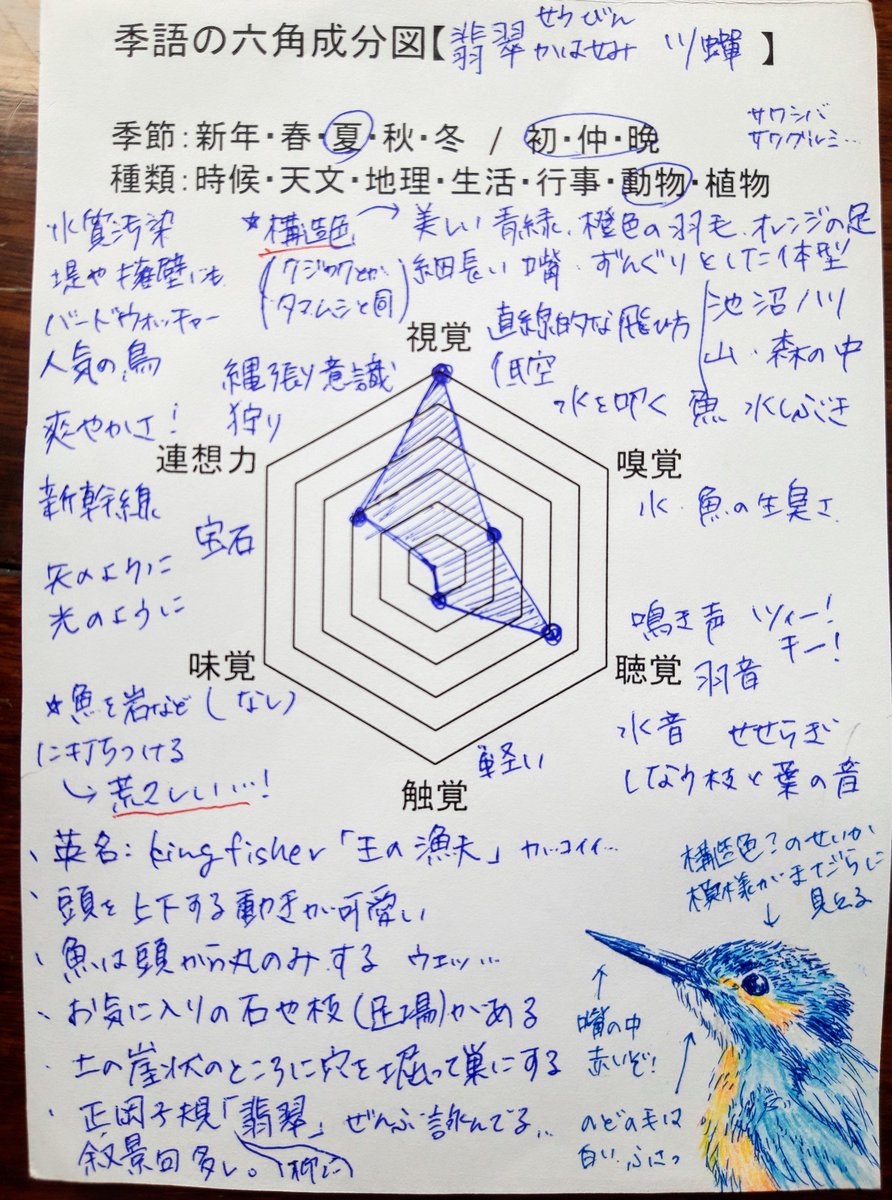 季語の六角成分図【翡翠 せうびん かはせみ 川蟬】
季節：新年・春・夏・秋・冬 / 初・仲・晩
種類：時候・天文・地理・生活・行事・動物・植物
サワシバ
サワグルミ…
水質汚染
堤や擁壁にも
バードウォッチャー
人気の鳥
爽やかさ！
新幹線
矢のように
光のように
宝石
★構造色
タマムシと同
縄張り意識
狩り
→美しい青緑、橙色の羽毛、オレンジの足
細長い嘴 ずんぐりとした体型
直線的な飛び方
低空
池沼川
山・森の中
水を叩く 魚 水しぶき
視覚
連想力
嗅覚
水・魚の生臭さ
味覚
(なし)
聴覚
鳴き声 ツィー！
キー！
羽音
水音 せせらぎ
しなり枝と葉の音
触覚
軽い
★魚を岩など
に打ちつける
→荒々しい…！
、英名：kingfisher「王の漁夫」カッコイイ…
、頭を上下する動きが可愛い
、魚は頭から丸のみする ウエッ…
・お気に入りの石や枝(足場)がある
・土の崖状のところに穴を掘って巣にする
・正岡子規「翡翠」ぜんぶ詠んでる…
叙景句多い。(柳に)
構造色？のせいか
模様がまだらに
見える
嘴の中
赤いぞ！
のどの毛は
白い ふさっ